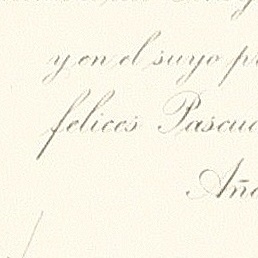 y en el suyo pr
felices Pascua
Año